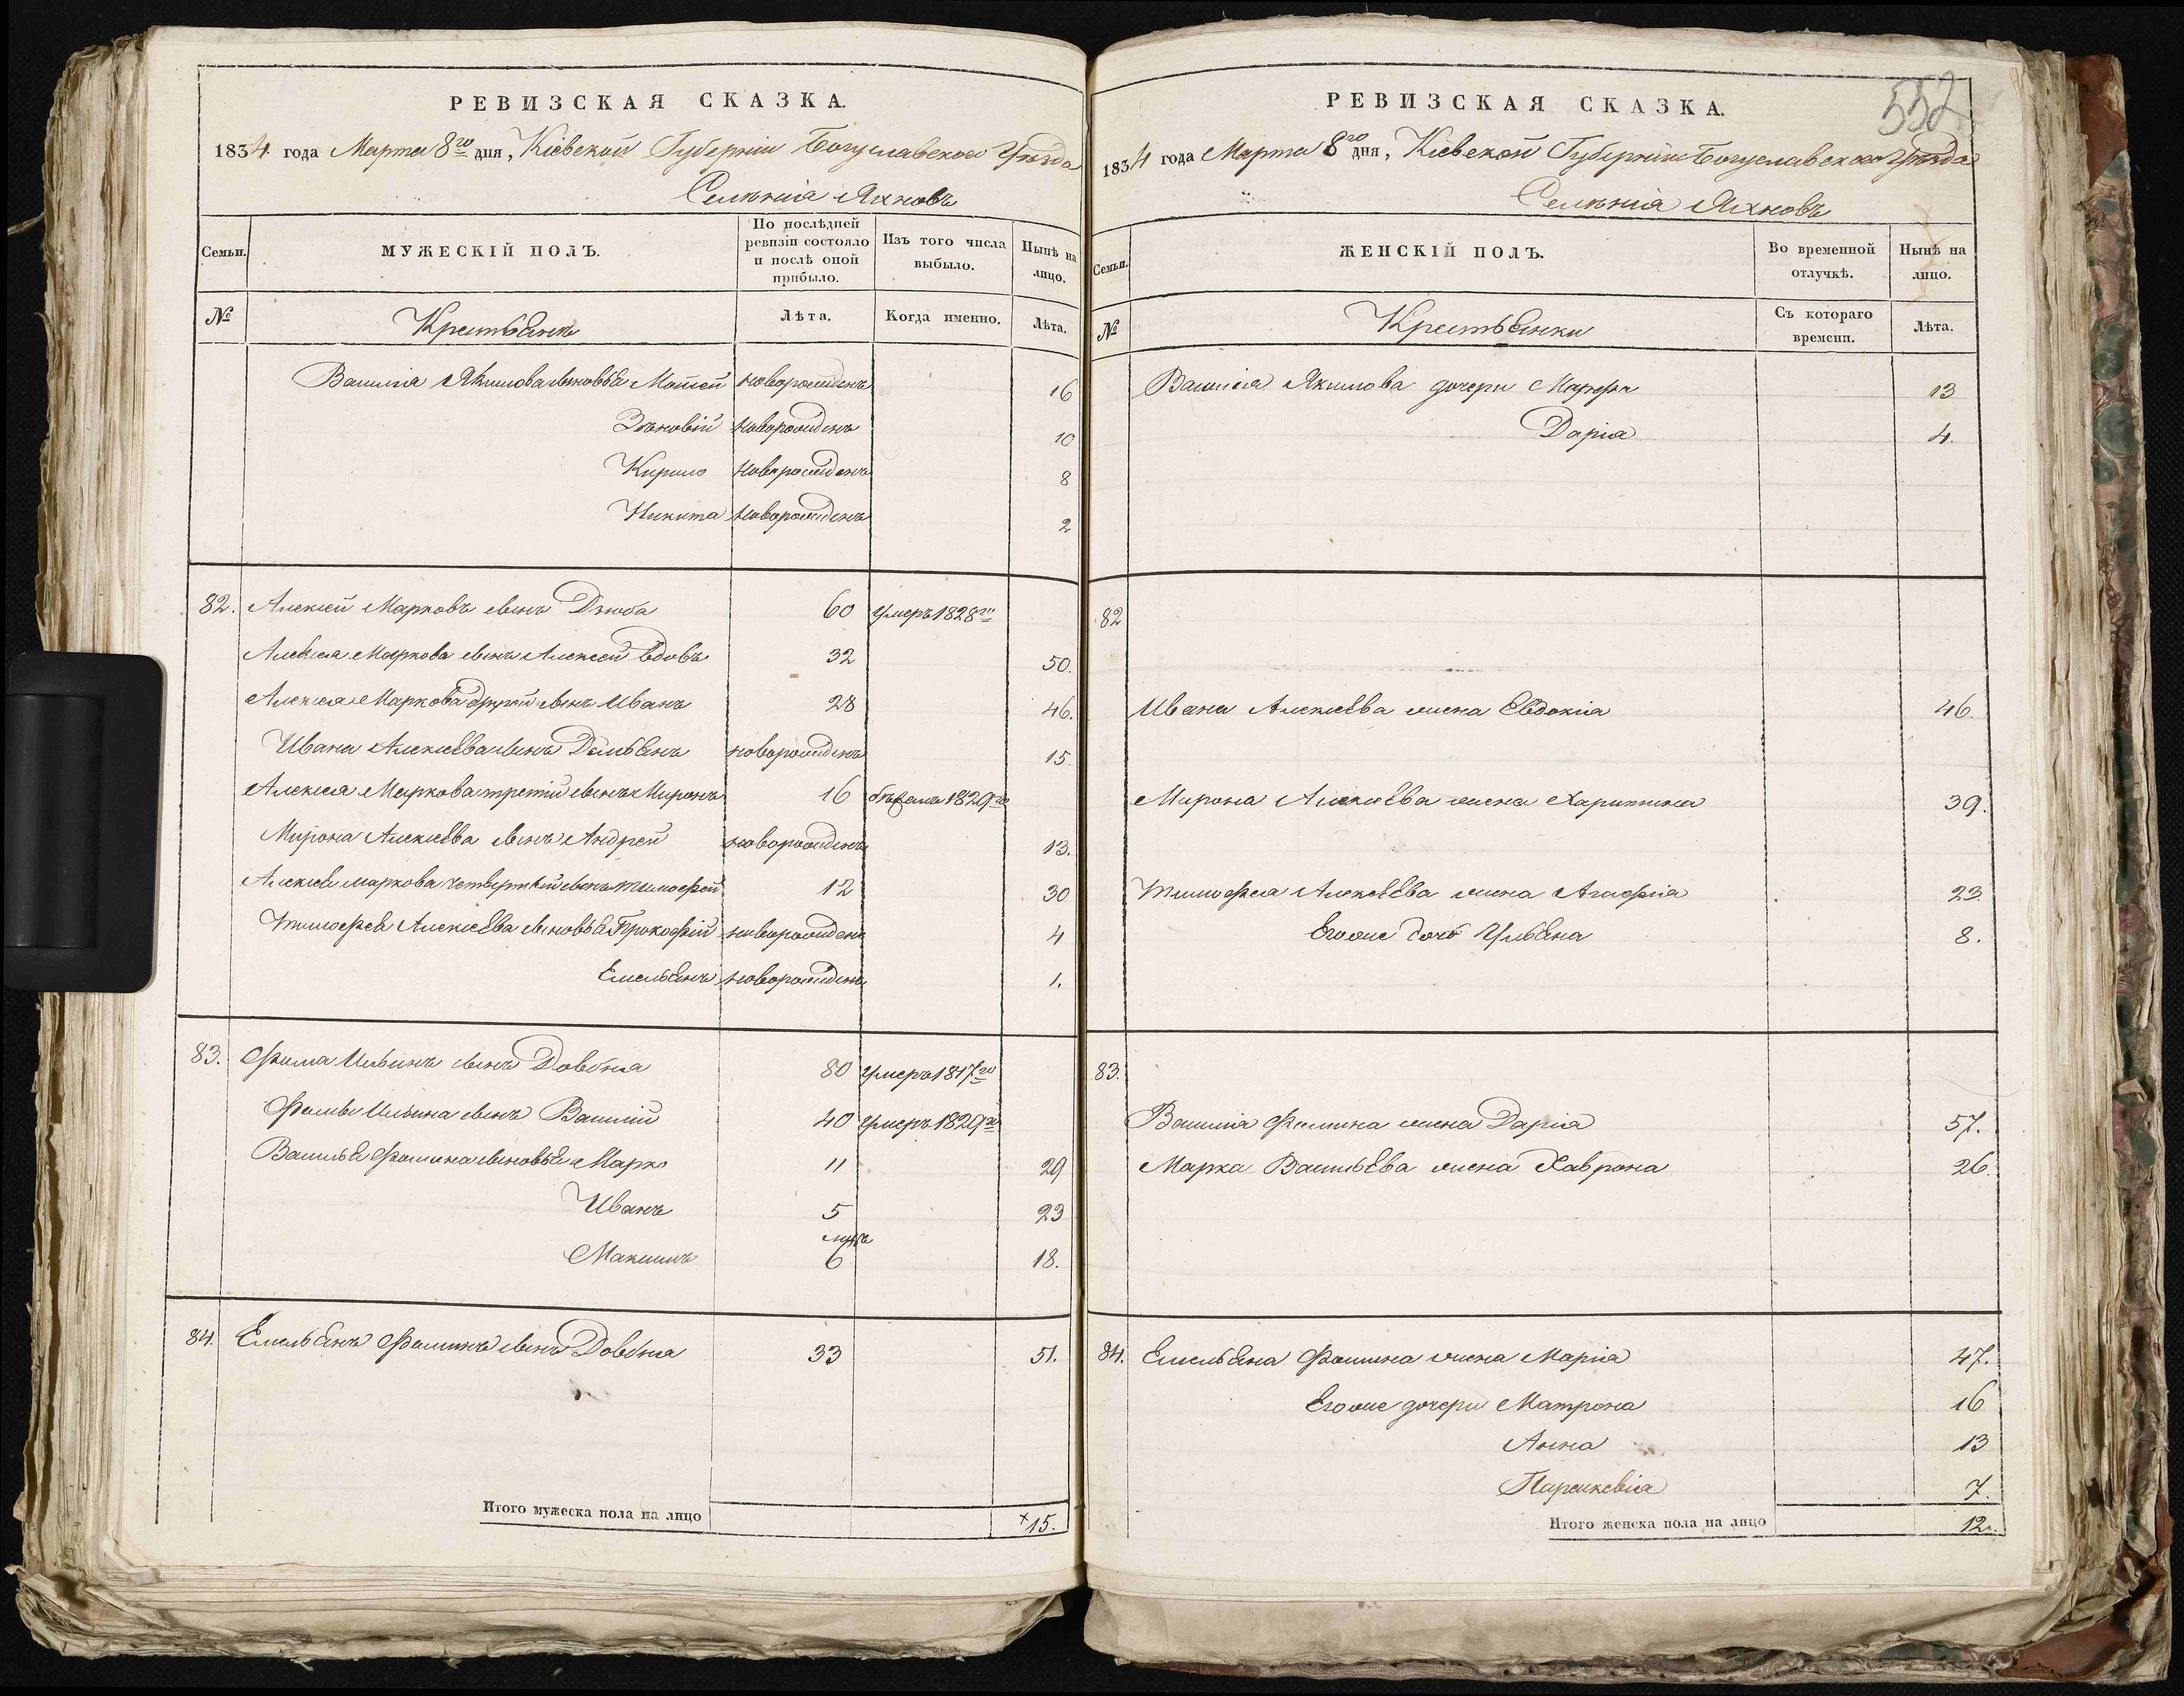 РЕВИЗСКАЯ СКАЗКА.
1834. года Марта 8го дня, Кіевской Губерніи Богуславского Уѣзда
Селѣнія Яхновъ
Семьи.
МУЖЕСКІЙ ПОЛЪ.
По послѣдней ревизіи состояло и послѣ оной прибыло.
Изъ того числа выбыло.
Нынѣ на лицо.
№
Крестьянѣ
Лѣта.
Когда именно.
Лѣта.
Василія Якимова сыновья Мойсей новорожденъ 16
Зѣновій новорожденъ 10
Кирило новорожденъ 8
Никита новорожденъ 2
82. Алексѣй Марковъ сынъ Дзюба 60 умеръ 1828го
Алексѣя Маркова сынъ Алексѣй вдовъ 32 50.
Алексѣя Маркова другой сынъ Иванъ 28 46.
Ивана Алексѣева сынъ Демьянъ новорожденъ 15.
Алексѣя Маркова третій сынъ Миронъ 16 бѣжалъ 1829го
Мирона Алексѣева сынъ Андрей новорожденъ 13.
Алексѣя Маркова четвертый сынъ Тимофей 12 30
Тимофея Алексѣева сыновья Прокофій новорожденъ 4
Емельянъ новорожденъ 1.
83. Фома Ильинъ сынъ Довбня 80 умеръ 1817го
Фомы Ильина сынъ Василій 40 умеръ 1829го
Василья Фомина сыновья Марко 11 29
Иванъ 5 23
Максимъ 6 18.
84. Емельянъ Фоминъ сынъ Довбня 33 51.
Итого мужеска пола на лицо 15.
552
РЕВИЗСКАЯ СКАЗКА.
1834 года Марта 8го дня, Кіевской Губерніи Богуславского Уѣзда
Селѣнія Яхновъ
Семьи.
ЖЕНСКІЙ ПОЛЪ.
Во временной отлучкѣ.
Нынѣ на лицо.
№
Крестьянки
Съ котораго времени.
Лѣта.
Василія Якимова дочери Марфа 13
Дарія 4.
82
Ивана Алексѣева жена Евдокія 46.
Мирона Алексѣева жена Харитина 39.
Тимофея Алексѣева жена Агафія 23.
Егоже дочь Ульяна 8.
83.
Василія Фомина жена Дарія 57.
Марка Васильева жена Хаврона 26.
84. Емельяна Фомина жена Марія 47.
Егоже дочери Матрона 16
Анна 13
Параскевія 7.
Итого женска пола на лицо 12.